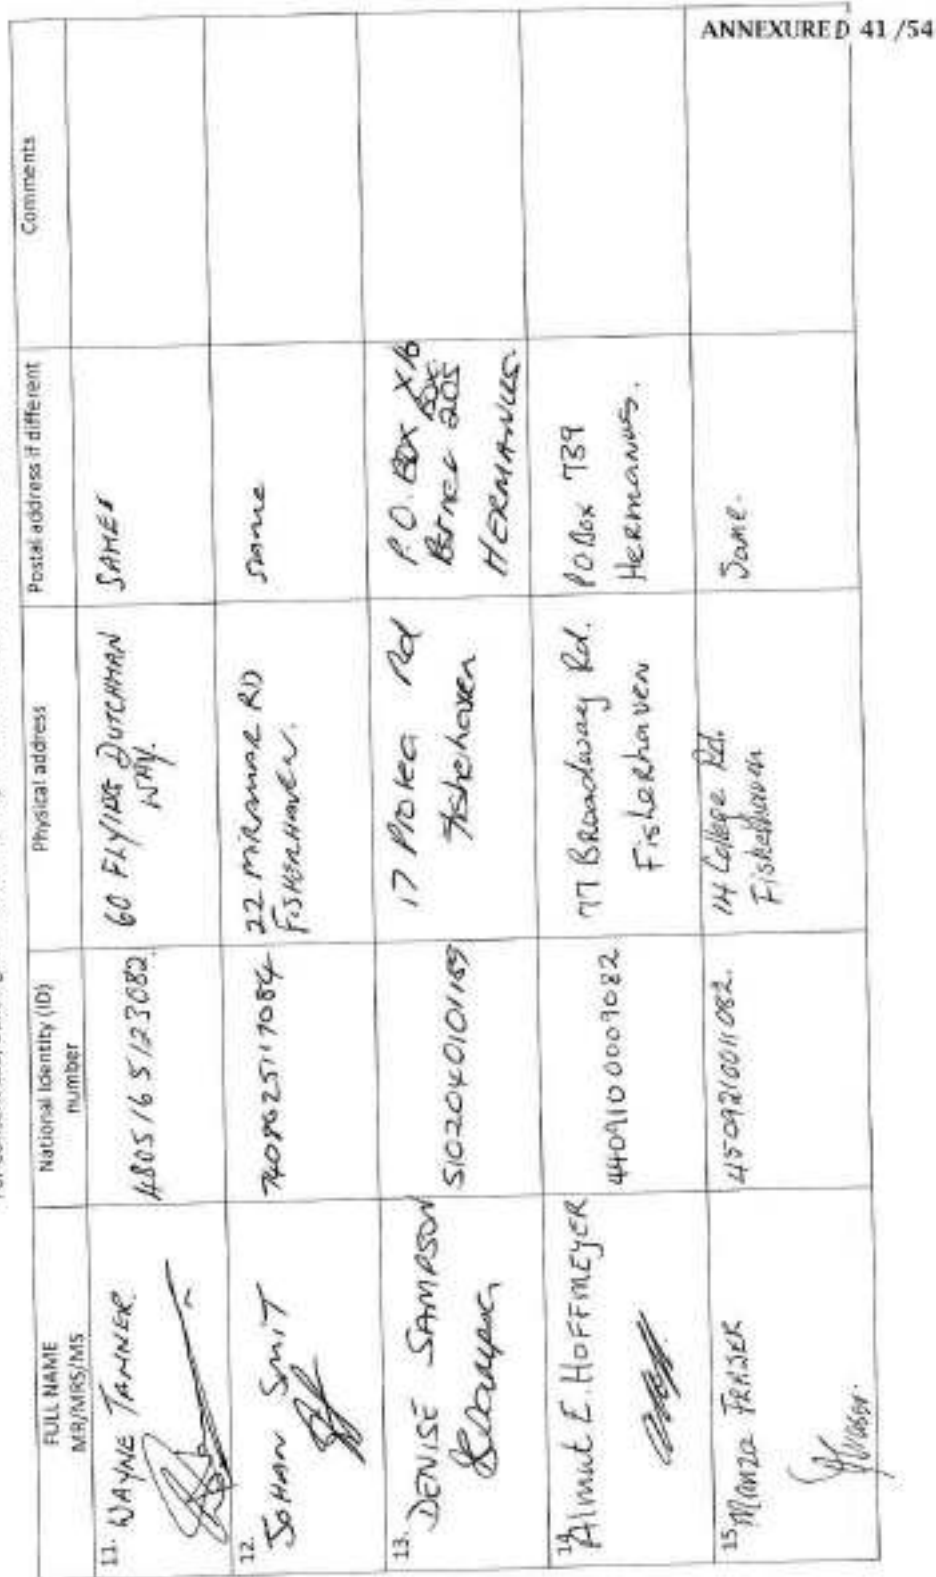 ANNEXURE D 41/54
FULL NAME
MR/MRS/MS
National Identity (ID)
number
Physical address
Postal address if different
Comments
11. WAYNE TANNER
4805165123082
60 FLYING DUTCHMAN
WAY.
SAME
12. JOHAN SMIT
22 MIRAMAR RD
FISHERHAVEN.
same
13. DENISE SAMPSON
5102040101189
17 Protea Rd
Fisherhaven
P.O. BOX X16
205
HERMANUS.
14. Almut E. HOFFMEYER
4409100009082
77 Broadway Rd.
Fisherhaven
PO Box 739
Hermanus.
15. FRASER
4509210011082.
14 College Rd.
Fisherhaven
Same.